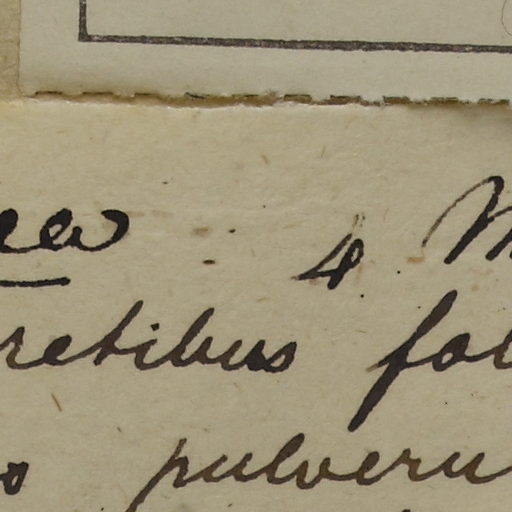 ea 4 M
retibus fol
o pulveru